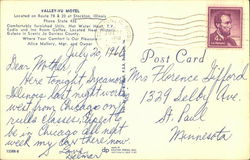 VALLEY-VU MOTEL
Located on Route 78 & 20 at Stockton, Illinois
Phone State 432
Comfortable furnished Units, Hot Water Heat, T.V.
Radio and Ice
Room Coffee. Located Near Historic
Galena in Scenic Jo Daviess County
Where Your Comfort Is Our Pleasure
Alice Mallory, Mgr. and Owner
July 20, 1960
Dear Mother,
Here tonight
Illinois last night
west from Chicago on
be in Chicago all next
week my car there now.
Love
Post Card
Mrs Florence Gifford
1329 Selby Ave.
St. Paul
Minnesota